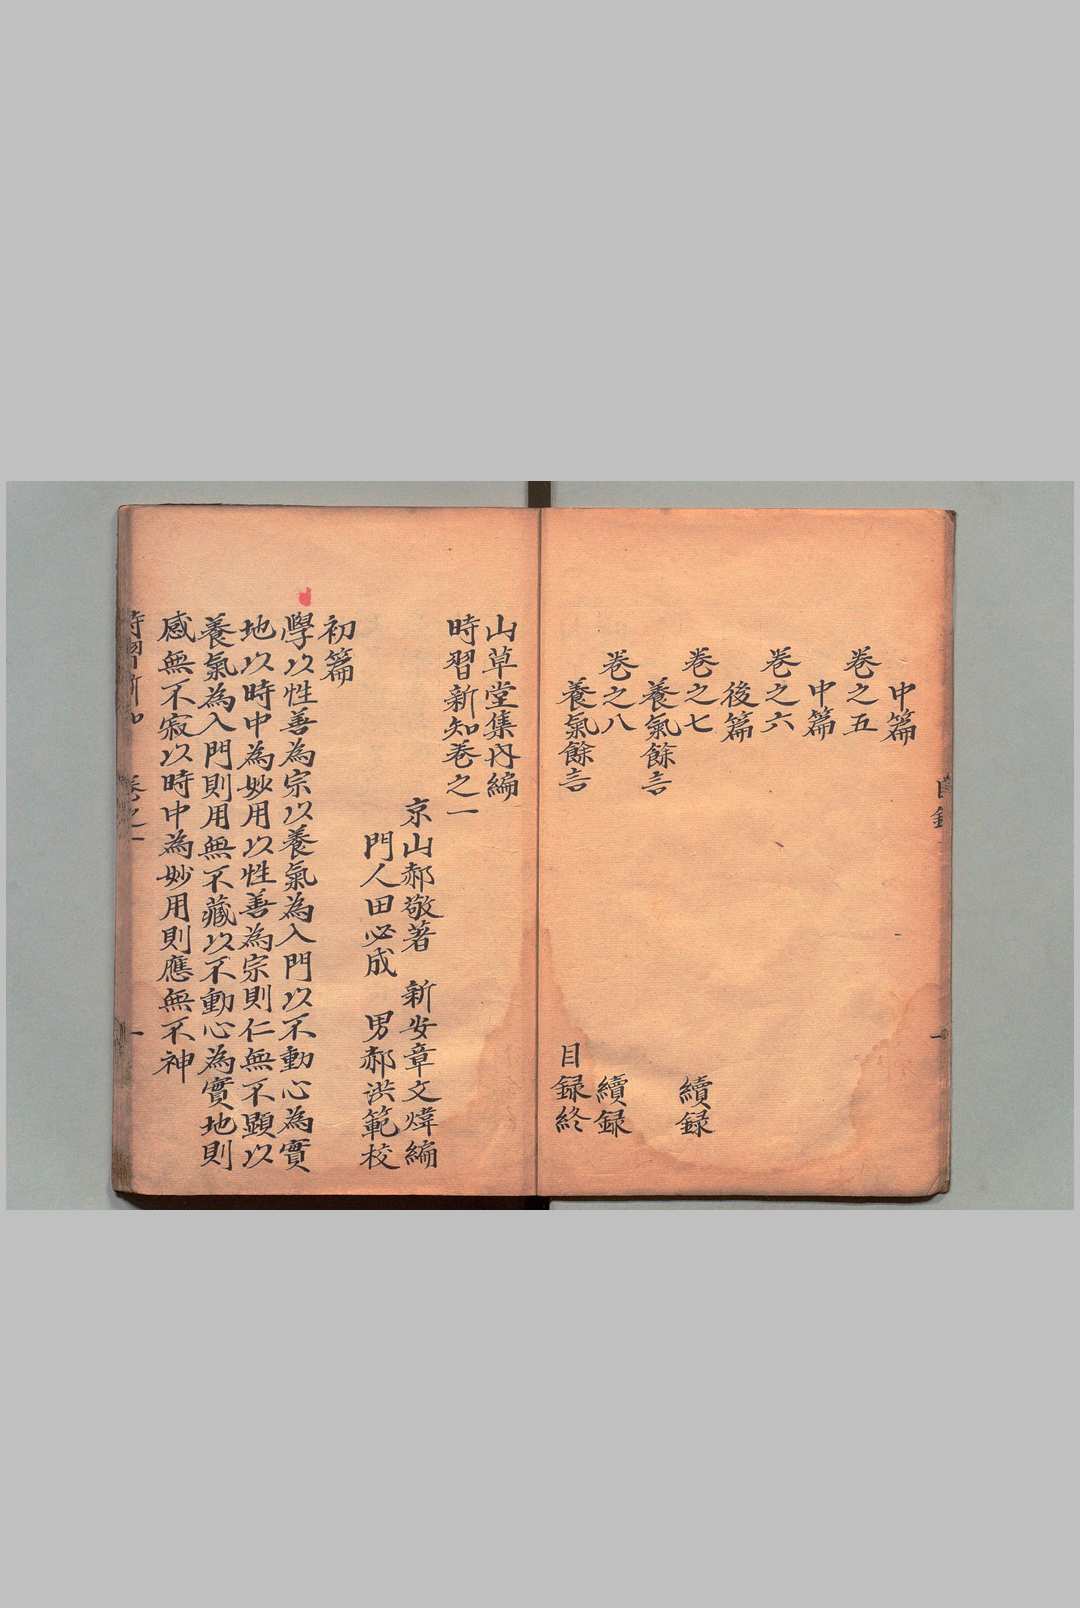 中篇
卷之五
中篇
卷之六
後篇
卷之七
養氣餘言
續録
卷之八
養氣餘言
續録
目録終
山草堂集内編
時習新知卷之一
京山郝敬著 新安章文煒編
門人田必成 男郝洪範校
初篇
學以性善為宗以養氣為入門以不動心為實
地以時中為妙用以性善為宗則仁無不顕以
養氣為入門則用無不藏以不動心為實地則
感無不寂以時中為妙用則應無不神
時習新知 卷之一 一